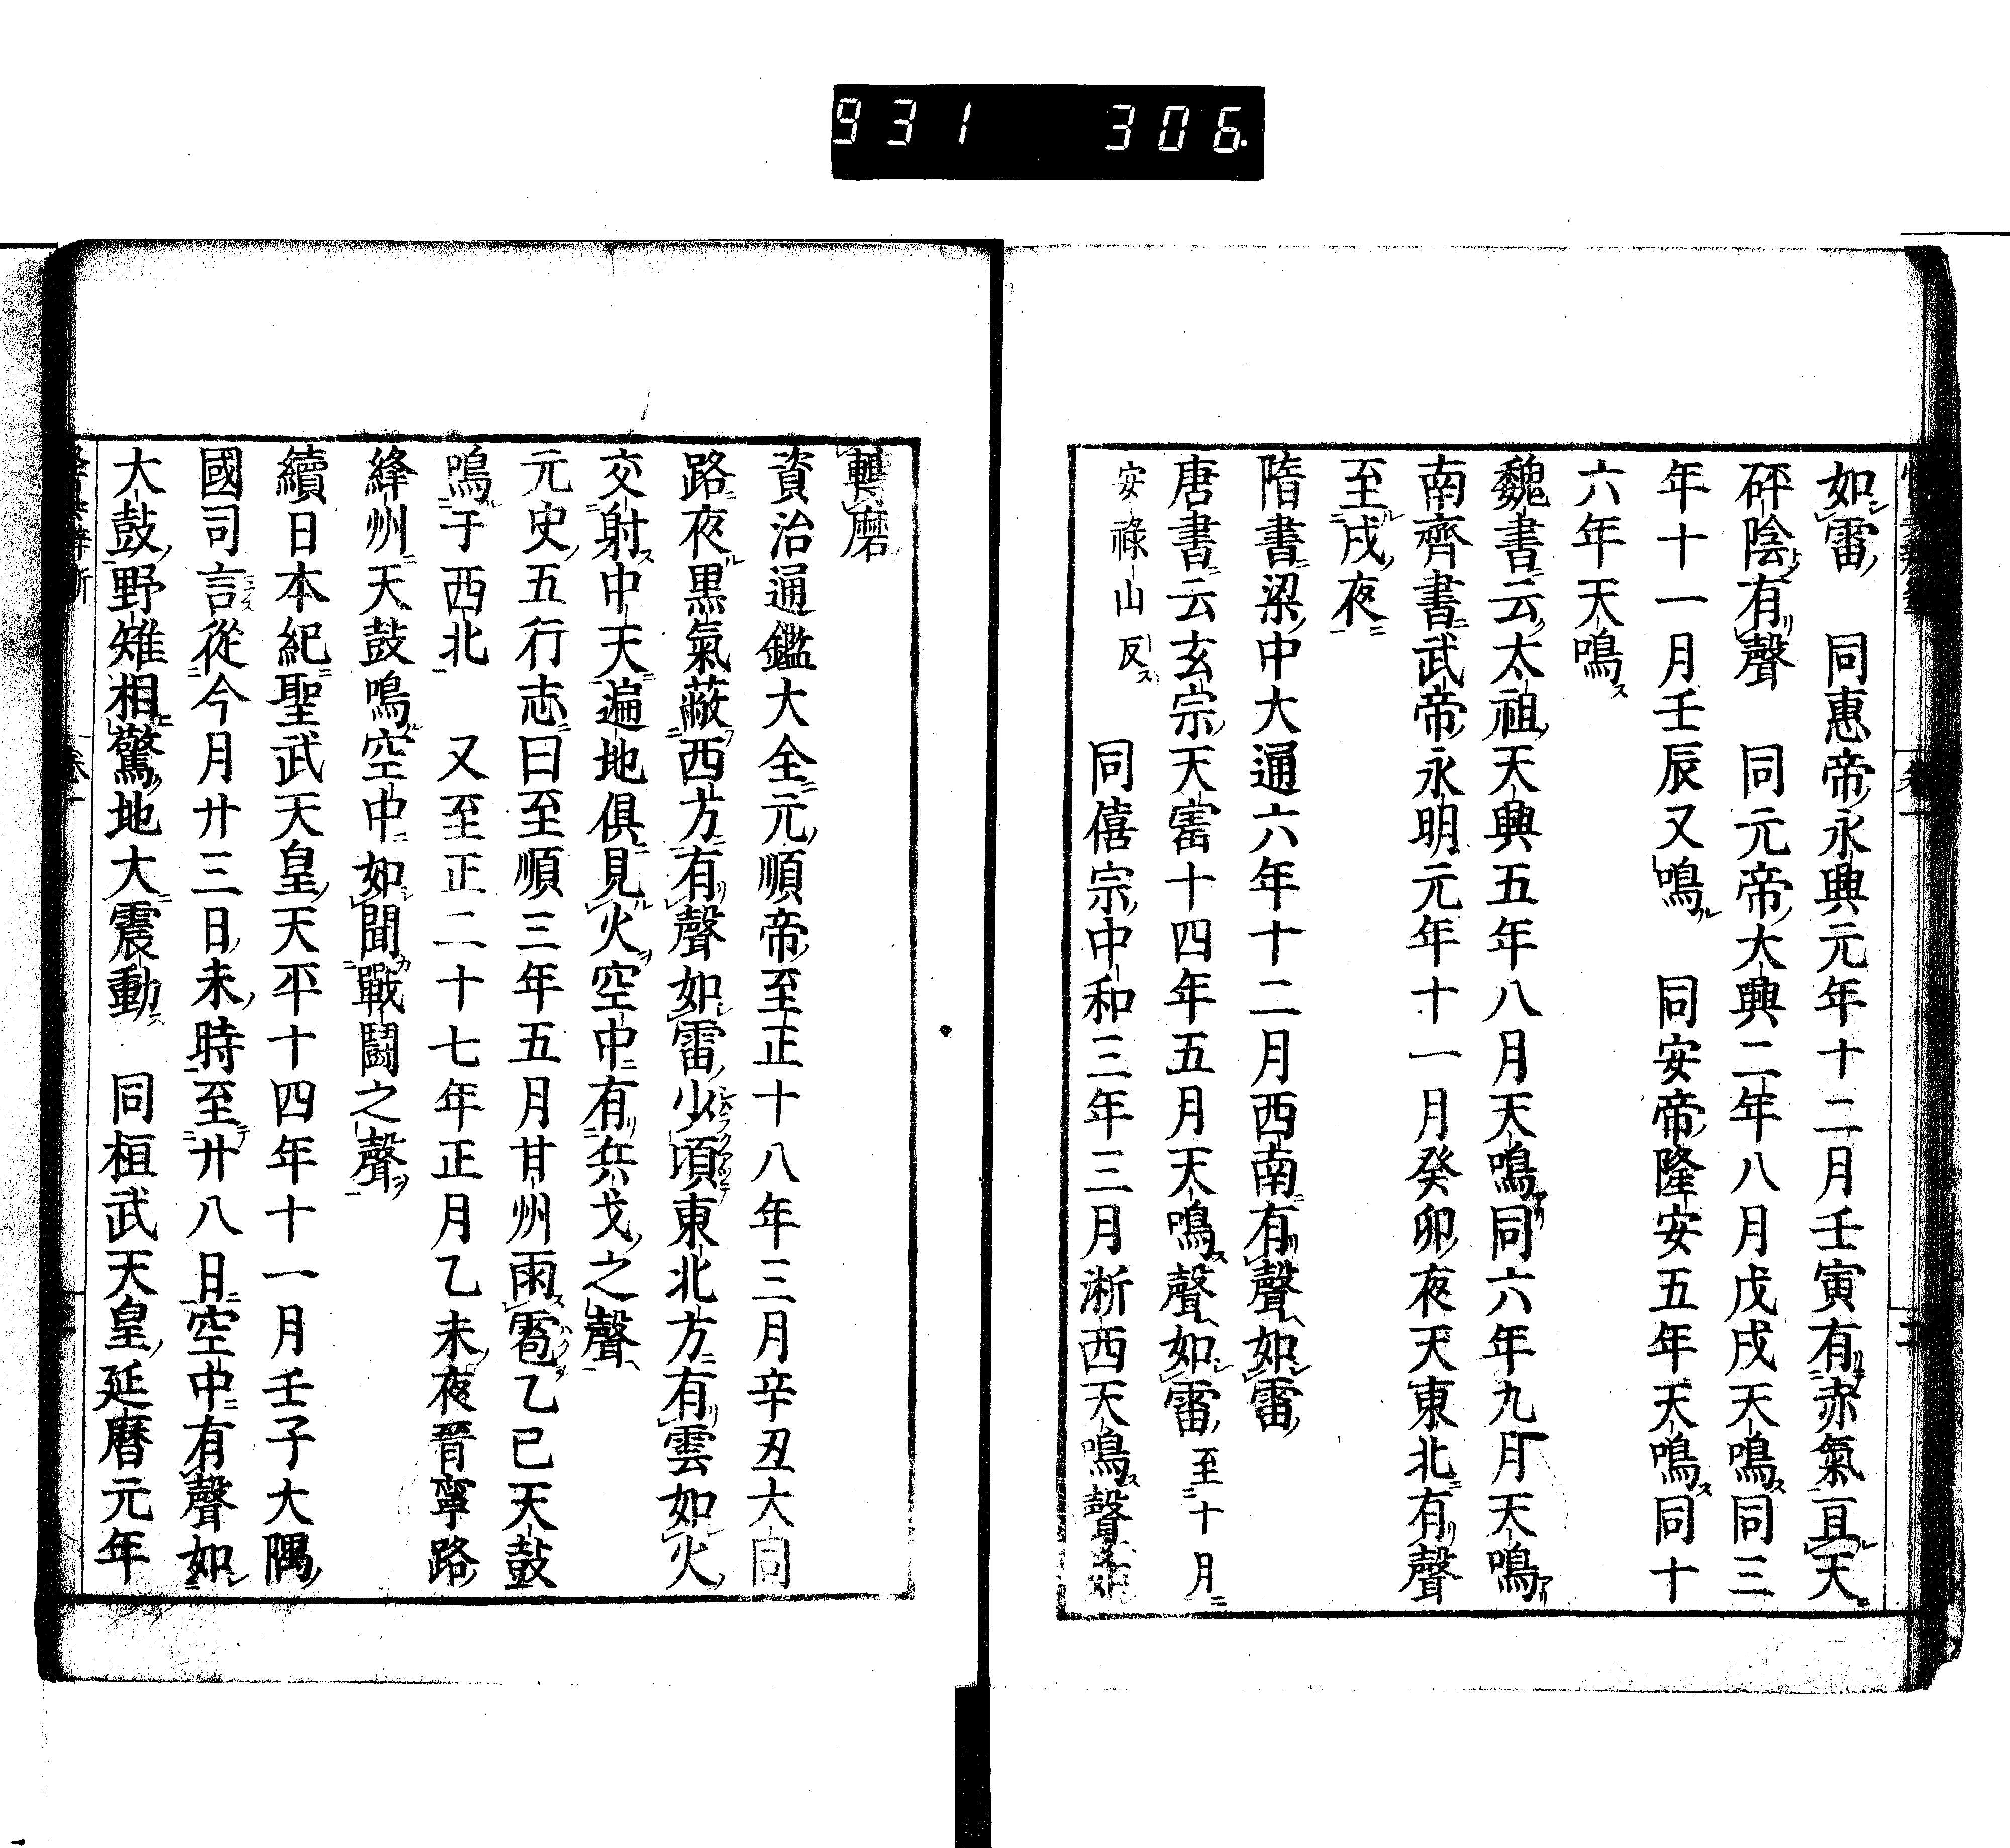 931 306
如雷　同惠帝永興元年十二月壬寅有赤氣亘天
砰隠有聲　同元帝大興二年八月戊戌天鳴同三
年十一月壬辰又鳴　同安帝隆安五年天鳴同十
六年天鳴
魏書云太祖天興五年八月天鳴同六年九月天鳴
南齊書武帝永明元年十一月癸卯夜天東北有聲
至戌夜
隋書梁中大通六年十二月西南有聲如雷
唐書云玄宗天寚十四年五月天鳴聲如雷至十月
安祿山反　同僖宗中和三年三月浙西天鳴聲如
轉磨
資治通鑑大全元順帝至正十八年三月辛丑大同
路夜黒氣蔽西方有聲如雷少頃東北方有雲如火
交射中天遍地俱見火空中有兵戈之聲
元史五行志曰至順三年五月甘州雨雹乙巳天鼓
鳴于西北　又至正二十七年正月乙未夜晉寧路
絳州天鼓鳴空中如聞戰鬪之聲
續日本紀聖武天皇天平十四年十一月壬子大隅
國司言從今月廿三日未時至廿八日空中有聲如
大鼓野雉相驚地大震動　同桓武天皇延曆元年
卷一